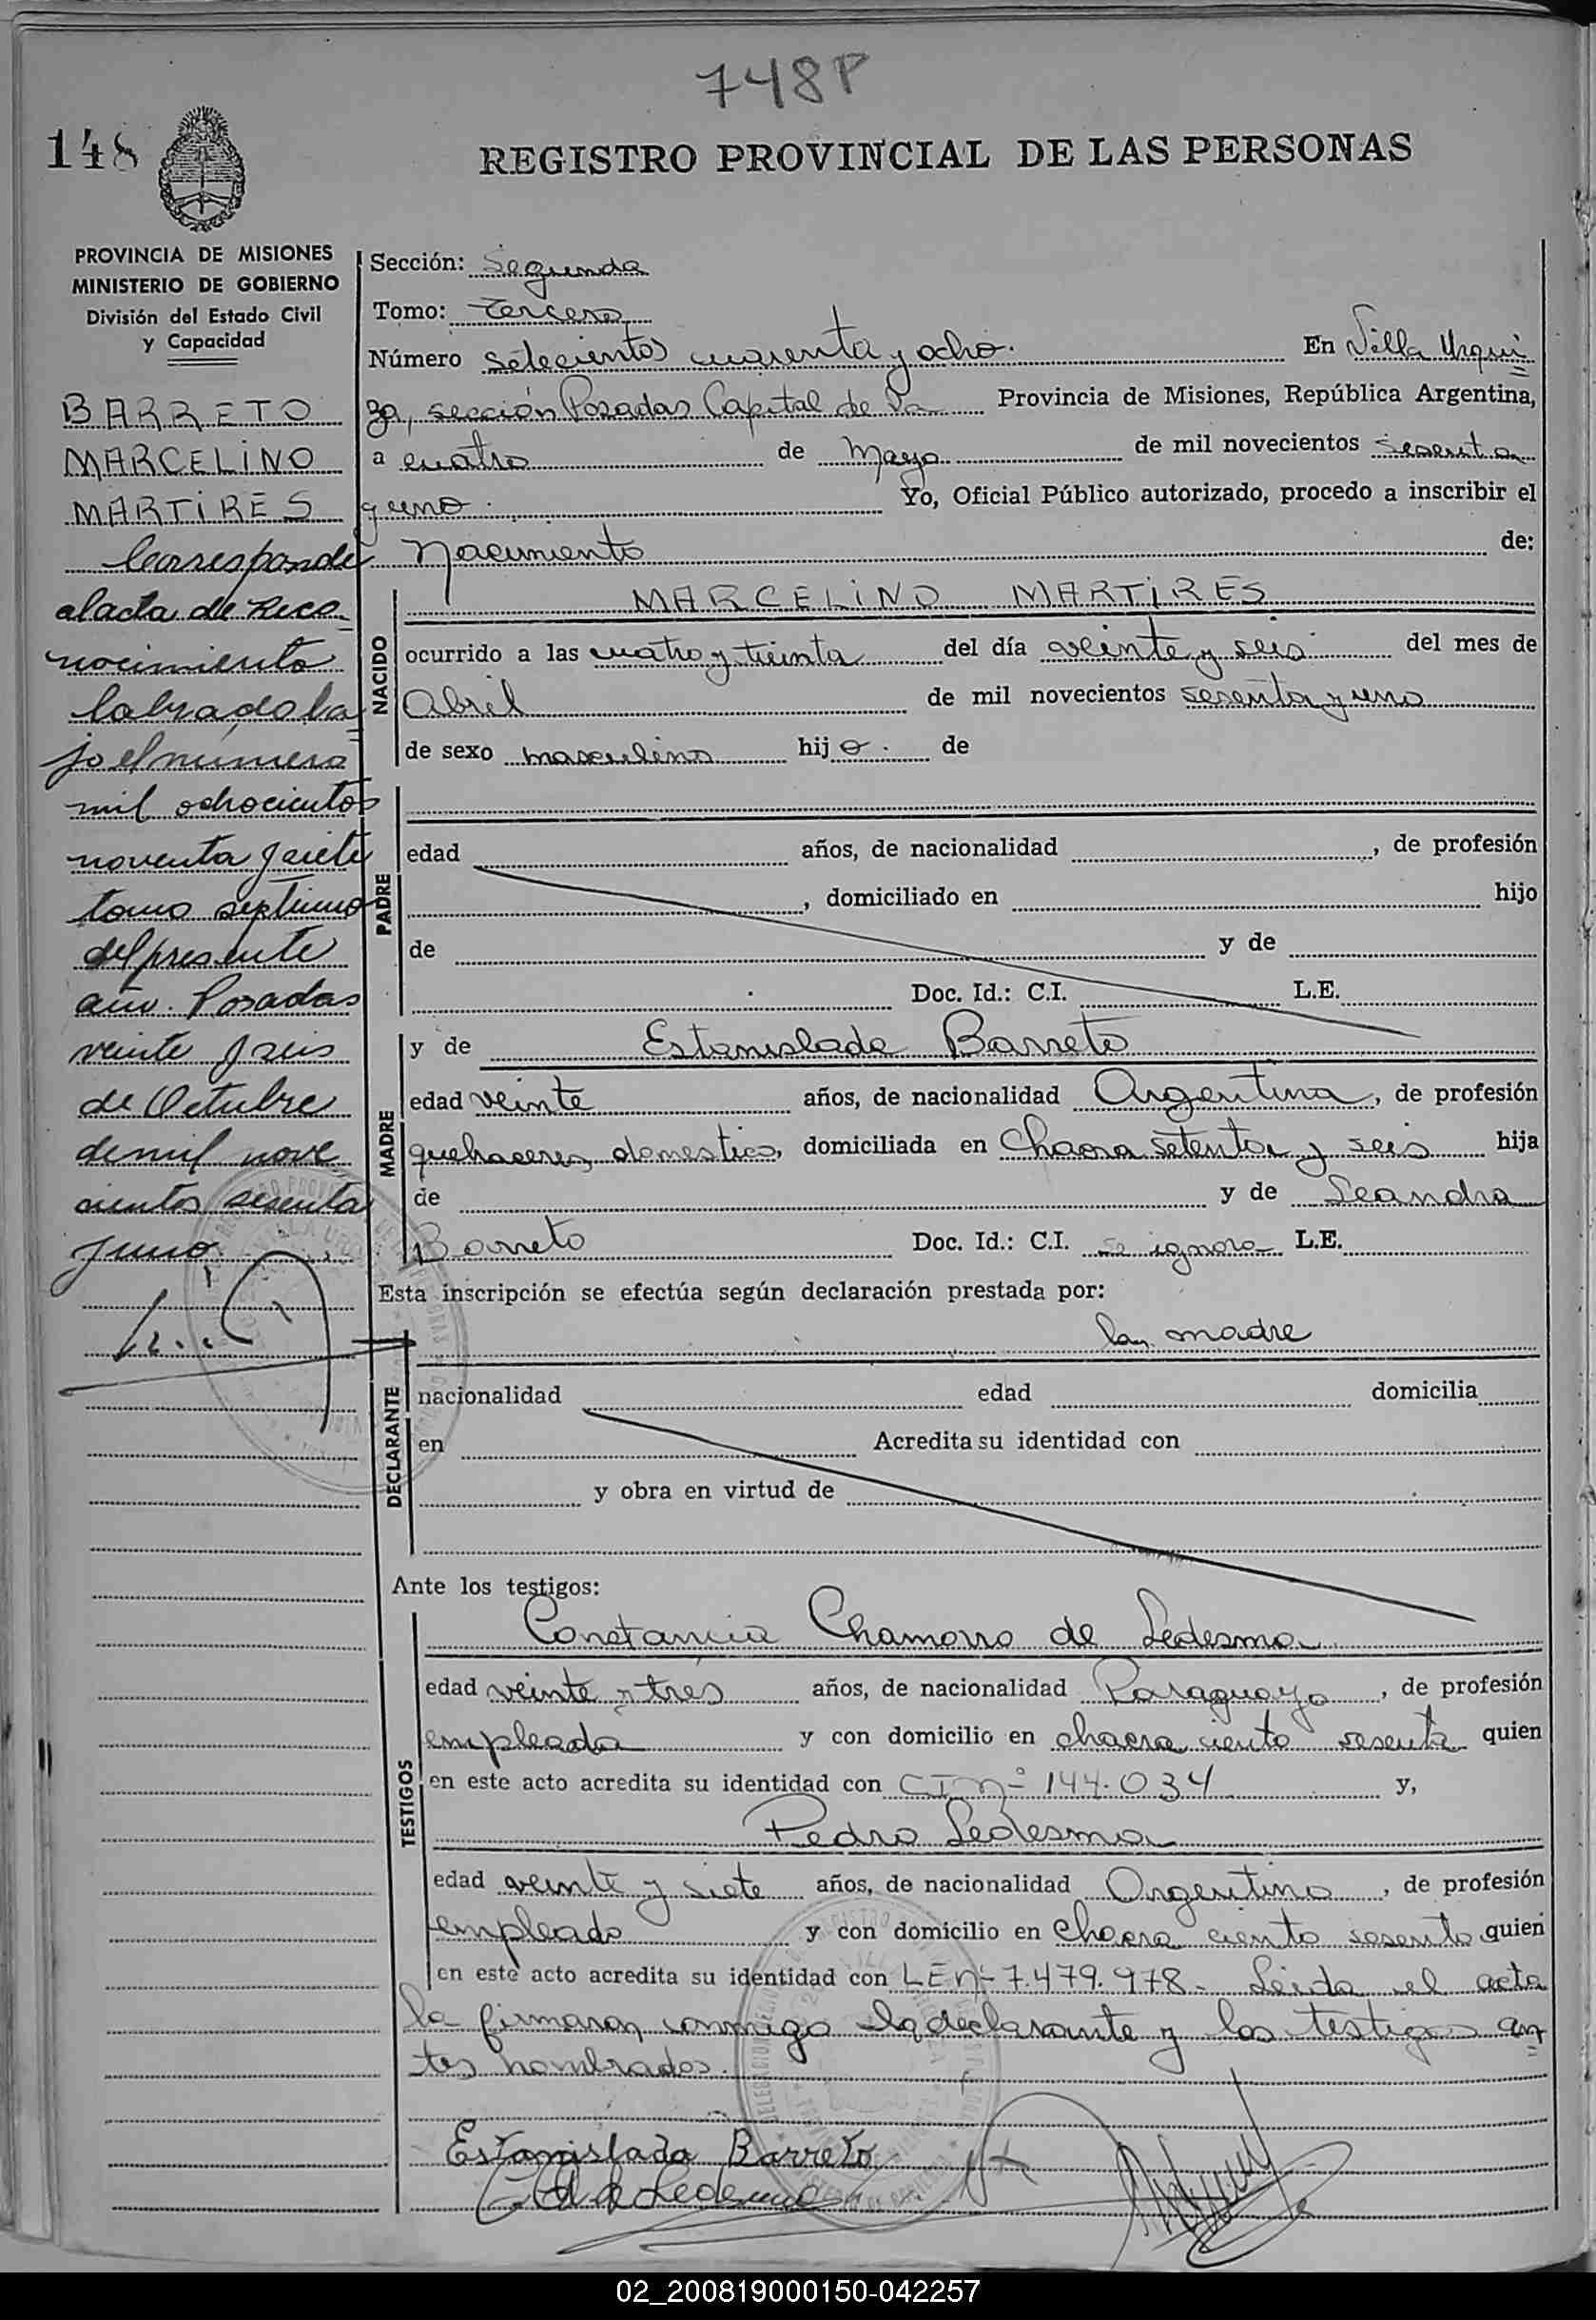 748P
148
REGISTRO PROVINCIAL DE LAS PERSONAS
PROVINCIA DE MISIONES
MINISTERIO DE GOBIERNO
División del Estado Civil
y Capacidad
BARRETO
MARCELINO
MARTIRES
Corresponde
al acta de Reco
nocimiento
labrado ba
jo el número
mil ochocientos
noventa y siete
tomo septimo
del presente
año. Posadas
veinte y seis
de Octubre
de mil nove
cientos sesenta
y uno
Sección: Segunda
Tomo: tercero
Número setecientos cuarenta y ocho. En Villa Urqui
za, sección Posadas Capital de la Provincia de Misiones, República Argentina,
a cuatro de Mayo de mil novecientos sesenta
y uno. Yo, Oficial Público autorizado, procedo a inscribir el
Nacimiento de:
MARCELINO MARTIRES
NACIDO
ocurrido a las cuatro y treinta del día veinte y seis del mes de
Abril de mil novecientos sesenta y uno
de sexo masculino hijo. de
PADRE
edad años, de nacionalidad , de profesión
, domiciliado en hijo
de y de
Doc. Id.: C.I. L.E.
y de Estanislada Barreto
MADRE
edad veinte años, de nacionalidad Argentina, de profesión
quehaceres domestico, domiciliada en Chacra setenta y seis hija
de y de Leandra
Barreto Doc. Id.: C.I. Se ignora L.E.
Esta inscripción se efectúa según declaración prestada por:
la madre
DECLARANTE
nacionalidad edad domicilia
en Acredita su identidad con
y obra en virtud de
Ante los testigos:
TESTIGOS
Constancia Chamorro de Ledesma
edad veinte y tres años, de nacionalidad Paraguaya, de profesión
empleada y con domicilio en chacra ciento sesenta quien
en este acto acredita su identidad con CI nº 144.034 y,
Pedro Ledesma
edad veinte y siete años, de nacionalidad Argentino, de profesión
empleado y con domicilio en Chacra ciento sesenta quien
en este acto acredita su identidad con LE nº 7.479.978- Leida el acta
la firmaron conmigo la declarante y los testigos an
tes nombrados.
Estanislada Barreto
de Ledesma
02_200819000150-042257